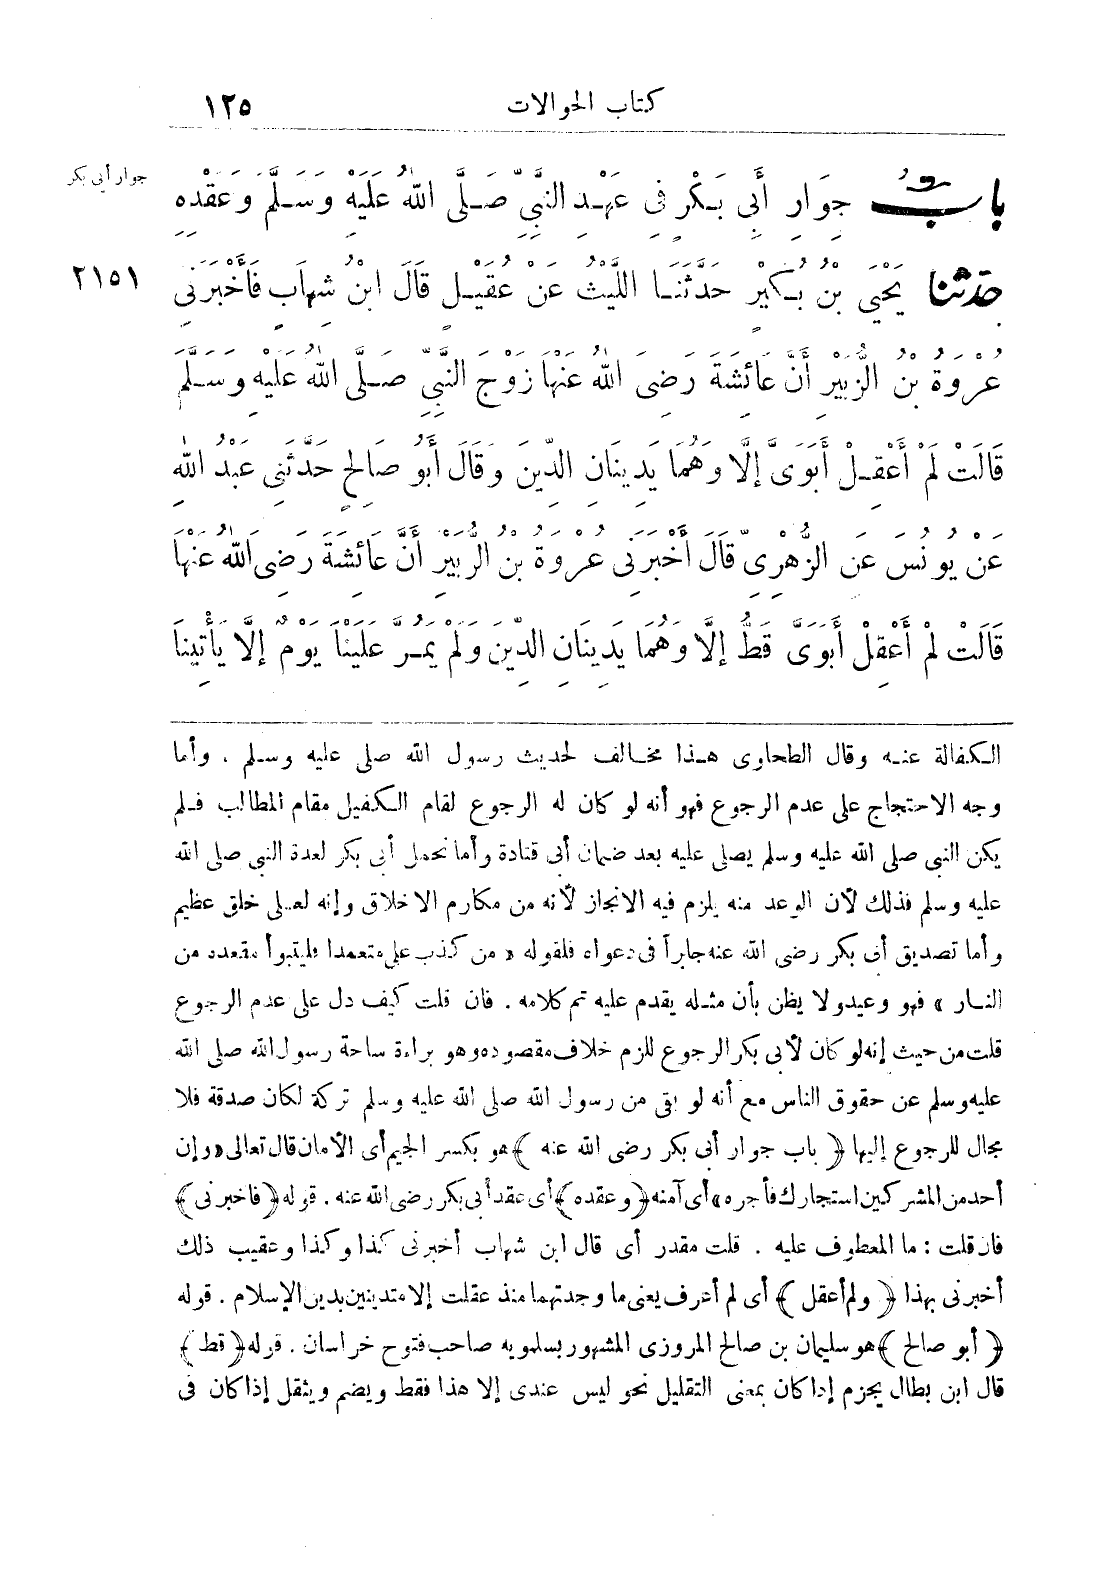 كتاب الحوالات ١٢٥
جوار أبى بكر
بابُ جِوَارِ أَبِى بَكْرٍ فِى عَهْدِ النَّبِىِّ صَلَّى اللهُ عَلَيْهِ وَسَلَّمَ وَعَقْدِهِ
٢١٥١
حَدَّثَنَا يَحْيَى بْنُ بُكَيْرٍ حَدَّثَنَا اللَّيْثُ عَنْ عُقَيْلٍ قَالَ ابْنُ شِهَابٍ فَأَخْبَرَنِى
عُرْوَةُ بْنُ الزُّبَيْرِ أَنَّ عَائِشَةَ رَضِىَ اللهُ عَنْهَا زَوْجَ النَّبِىِّ صَلَّى اللهُ عَلَيْهِ وَسَلَّمَ
قَالَتْ لَمْ أَعْقِلْ أَبَوَىَّ إِلَّا وَهُمَا يَدِينَانِ الدِّينَ وَقَالَ أَبُو صَالِحٍ حَدَّثَنِى عَبْدُ اللهِ
عَنْ يُونُسَ عَنِ الزُّهْرِىِّ قَالَ أَخْبَرَنِى عُرْوَةُ بْنُ الزُّبَيْرِ أَنَّ عَائِشَةَ رَضِىَ اللهُ عَنْهَا
قَالَتْ لَمْ أَعْقِلْ أَبَوَىَّ قَطُّ إِلَّا وَهُمَا يَدِينَانِ الدِّينَ وَلَمْ يَمُرَّ عَلَيْنَا يَوْمٌ إِلَّا يَأْتِينَا
الكفالة عنه وقال الطحاوى هذا مخالف لحديث رسول الله صلى عليه وسلم . وأما
وجه الاحتجاج على عدم الرجوع فهو أنه لو كان له الرجوع لقام الكفيل مقام المطالب فلم
يكن النبى صلى الله عليه وسلم يصلى عليه بعد ضمان أبى قتادة وأما تحمل أبى بكر لعدة النبى صلى الله
عليه وسلم فذلك لأن الوعد منه يلزم فيه الانجاز لأنه من مكارم الاخلاق وإنه لعلى خلق عظيم
وأما تصديق أبى بكر رضى الله عنه جابراً فى دعواه فلقوله « من كذب على متعمدا فليتبوأ مقعده من
النار » فهو وعيد ولا يظن بأن مثله يقدم عليه تم كلامه . فان قلت كيف دل على عدم الرجوع
قلت من حيث إنه لو كان لأبى بكر الرجوع للزم خلاف مقصوده وهو براءة ساحة رسول الله صلى الله
عليه وسلم عن حقوق الناس مع أنه لو بقى من رسول الله صلى الله عليه وسلم تركة لكان صدقة فلا
مجال للرجوع إليها ﴿ باب جوار أبى بكر رضى الله عنه ﴾ هو بكسر الجيم أى الأمان قال تعالى « وإن
أحد من المشركين استجارك فأجره » أى آمنه ﴿ وعقده ﴾ أى عقد أبى بكر رضى الله عنه . قوله ﴿ فاخبرنى ﴾
فان قلت : ما المعطوف عليه . قلت مقدر أى قال ابن شهاب أخبرنى كذا وكذا وعقيب ذلك
أخبرنى بهذا ﴿ ولم أعقل ﴾ أى لم أعرف يعنى ما وجدتهما منذ عقلت إلا متدينين بدين الإسلام . قوله
﴿ أبو صالح ﴾ هو سليمان بن صالح المروزى المشهور بسلمويه صاحب فتوح خراسان . قوله ﴿ قط ﴾
قال ابن بطال يجزم إذا كان بمعنى التقليل نحو ليس عندى إلا هذا فقط ويضم ويثقل إذا كان فى